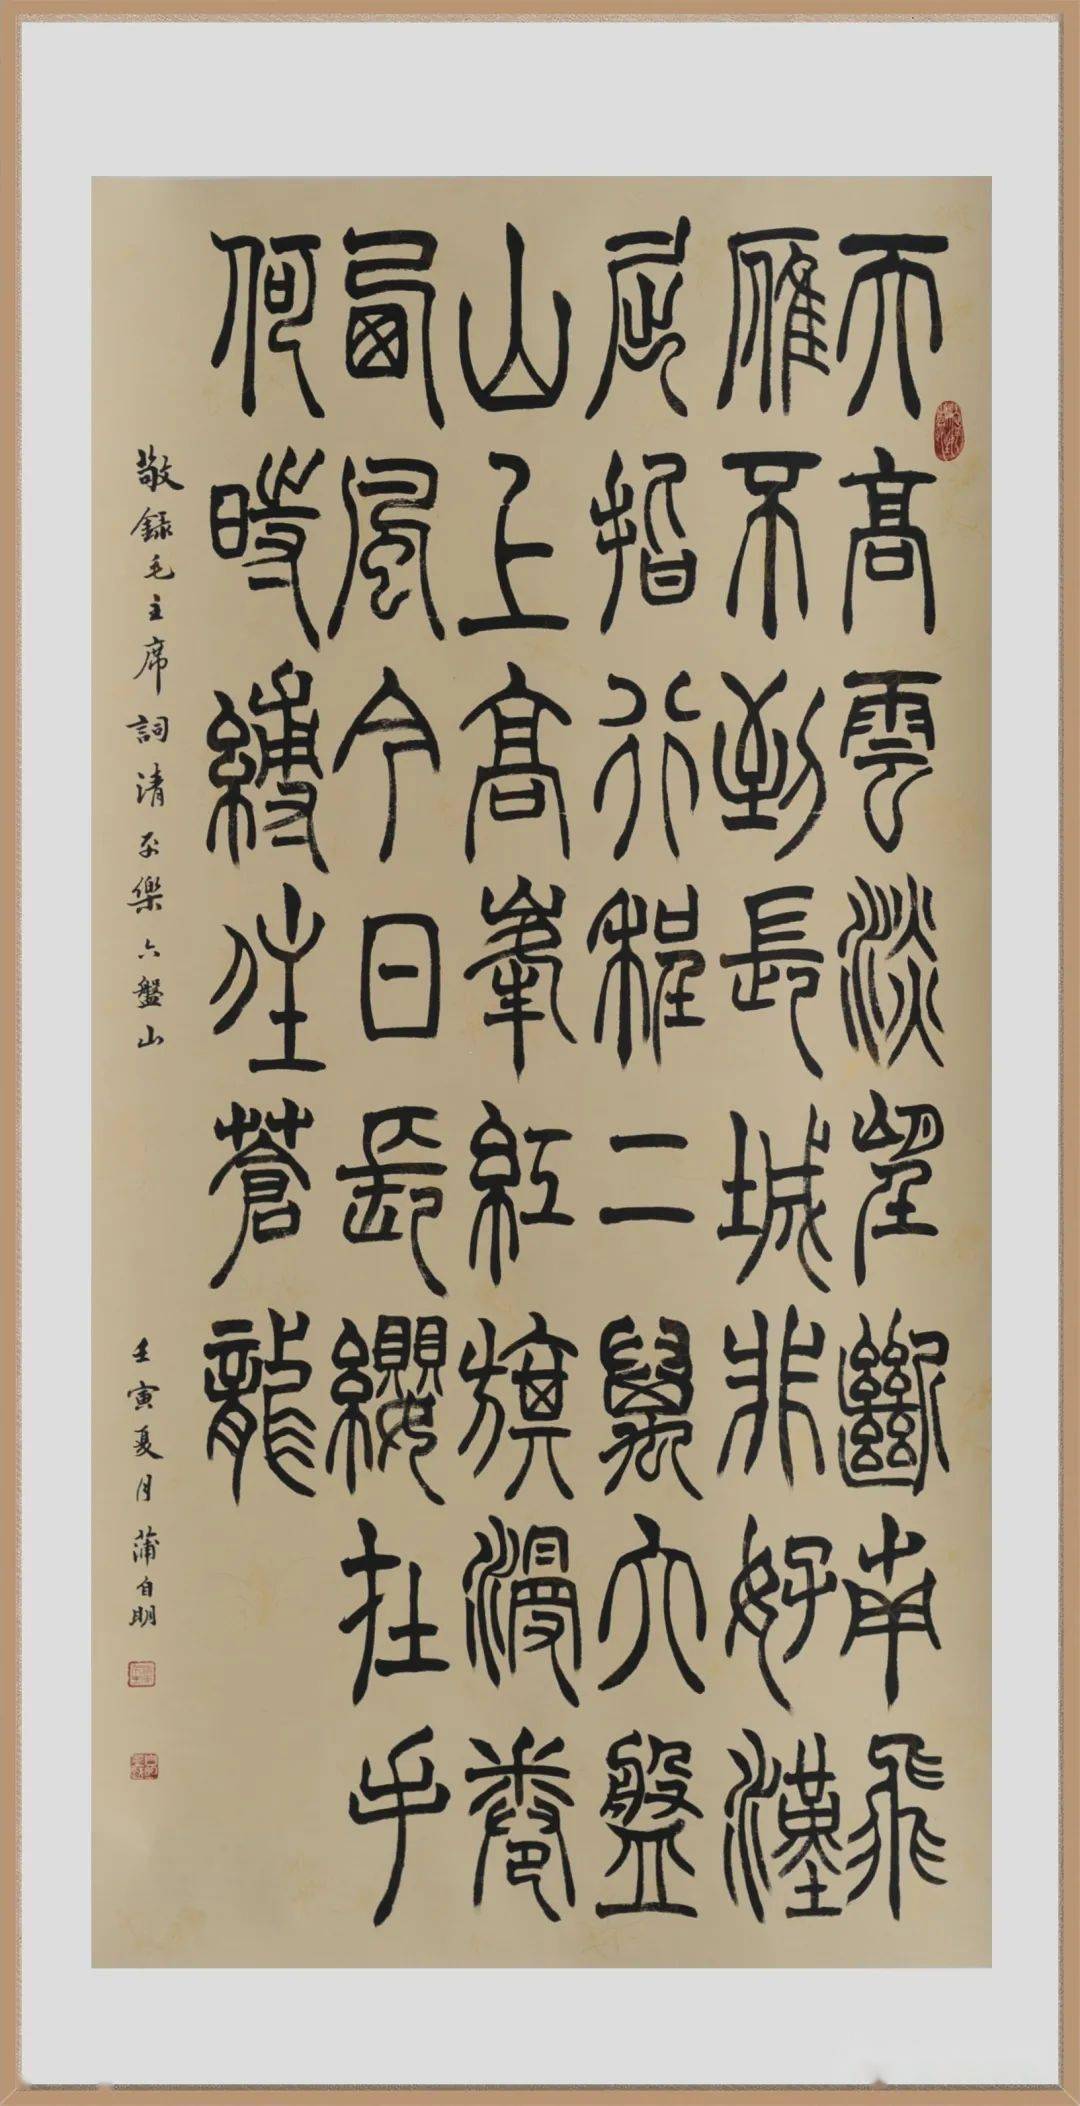 天高雲淡望斷南飛
雁不到長城非好漢
屈指行程二萬六盤
山上高峯紅旗漫卷
西風今日長纓在手
何時縛住蒼龍
敬錄毛主席詞清平樂六盤山
壬寅夏月蒲自明